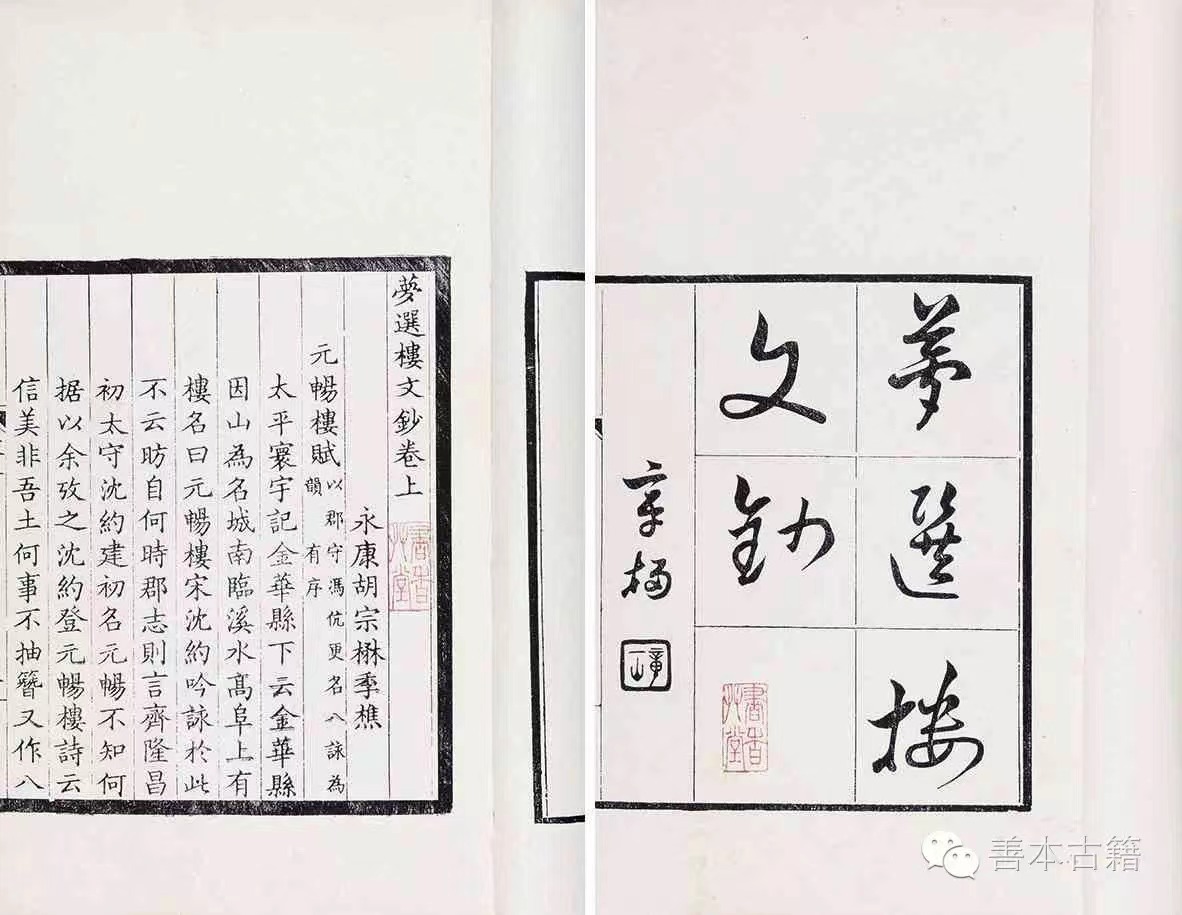 夢選樓
文鈔
章梫
書香
堂
夢選樓文鈔卷上
永康胡宗楙季樵
元暢樓賦以郡守馮伉更名八詠為
韻 有序
太平寰宇記金華縣下云金華縣
因山為名城南臨溪水高阜上有
樓名曰元暢樓宋沈約吟詠於此
不云昉自何時郡志則言齊隆昌
初太守沈約建初名元暢不知何
据以余攷之沈約登元暢樓詩云
信美非吾土何事不抽簪又作八
書香
堂
善本古籍